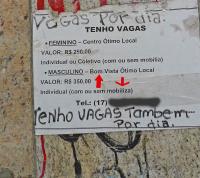 VAGAS Por dia.
TENHO VAGAS
• FEMININO – Centro Ótimo Local
VALOR: R$ 250,00
Individual ou Coletivo (com ou sem mobilia)
• MASCULINO – Bom Vista Ótimo Local
VALOR: R$ 350,00
Individual (com ou sem mobiliza)
Tel.: (17)
Tenho VAGAS Tambem
Por dia.